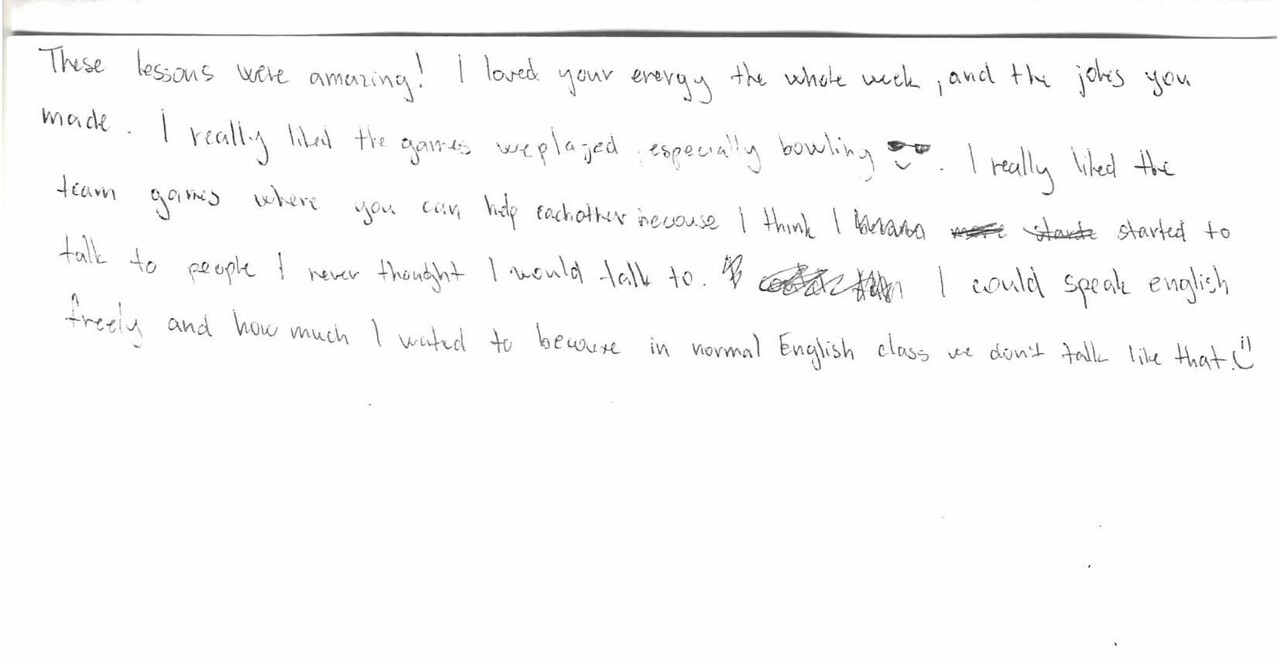 These lessons were amazing! I loved your energy the whole week, and the jokes you
made. I really liked the games weplayed especially bowling. I really liked the
team games where you can help eachother because I think I started to
talk to people I never thought I would talk to. I could speak english
freely and how much I wated to because in normal English class we don't talk like that.